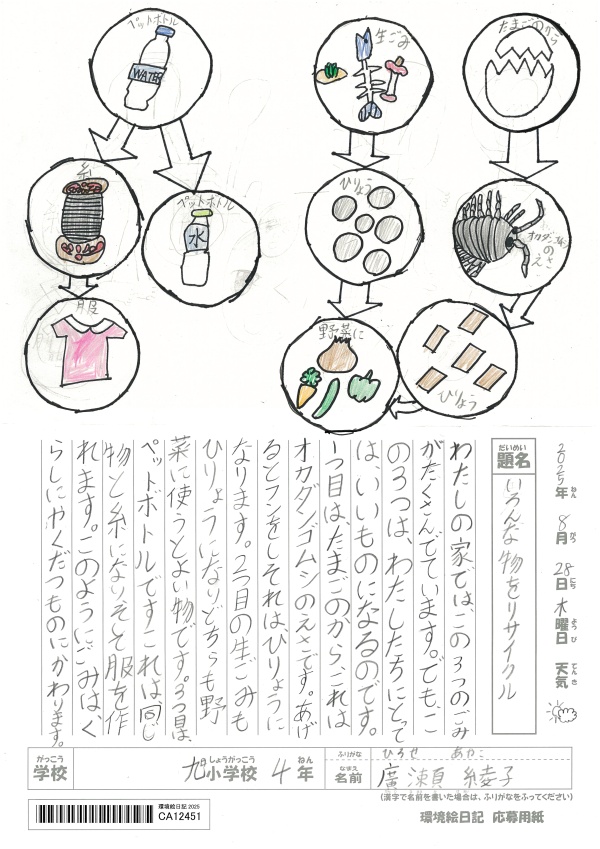 ペットボトル
WATER
生ごみ
たまごのから
糸
ペットボトル
水
ひりょう
オカダンゴムシ
のえさ
服
野菜に
ひりょう
2025年 8月 28日 木曜日 天気
ねん がつ にち ようび てんき
だいめい
題名
いろんな物をリサイクル
わたしの家では、この3つのごみ
がたくさんでています。でも、こ
の3つは、わたしたちにとって
は、いいものになるのです。
1つ目は、たまごのから、これは
オカダンゴムシのえさです。あげ
るとフンをしそれはひりょうに
なります。2つ目の生ごみも
ひりょうになりどちらも野
菜に使うとよい物です。3つ目は、
ペットボトルですこれは同じ
物と糸になりそそ服を作
れます。このようにごみは、く
らしにやくだつものにかわります。
がっこう
学校
しょうがっこう
小学校
ねん
4年
ふりがな
ひろせ あやこ
なまえ
名前
廣瀬 綾子
(漢字で名前を書いた場合は、ふりがなをふってください)
環境絵日記 2025
CA12451
環境絵日記 応募用紙